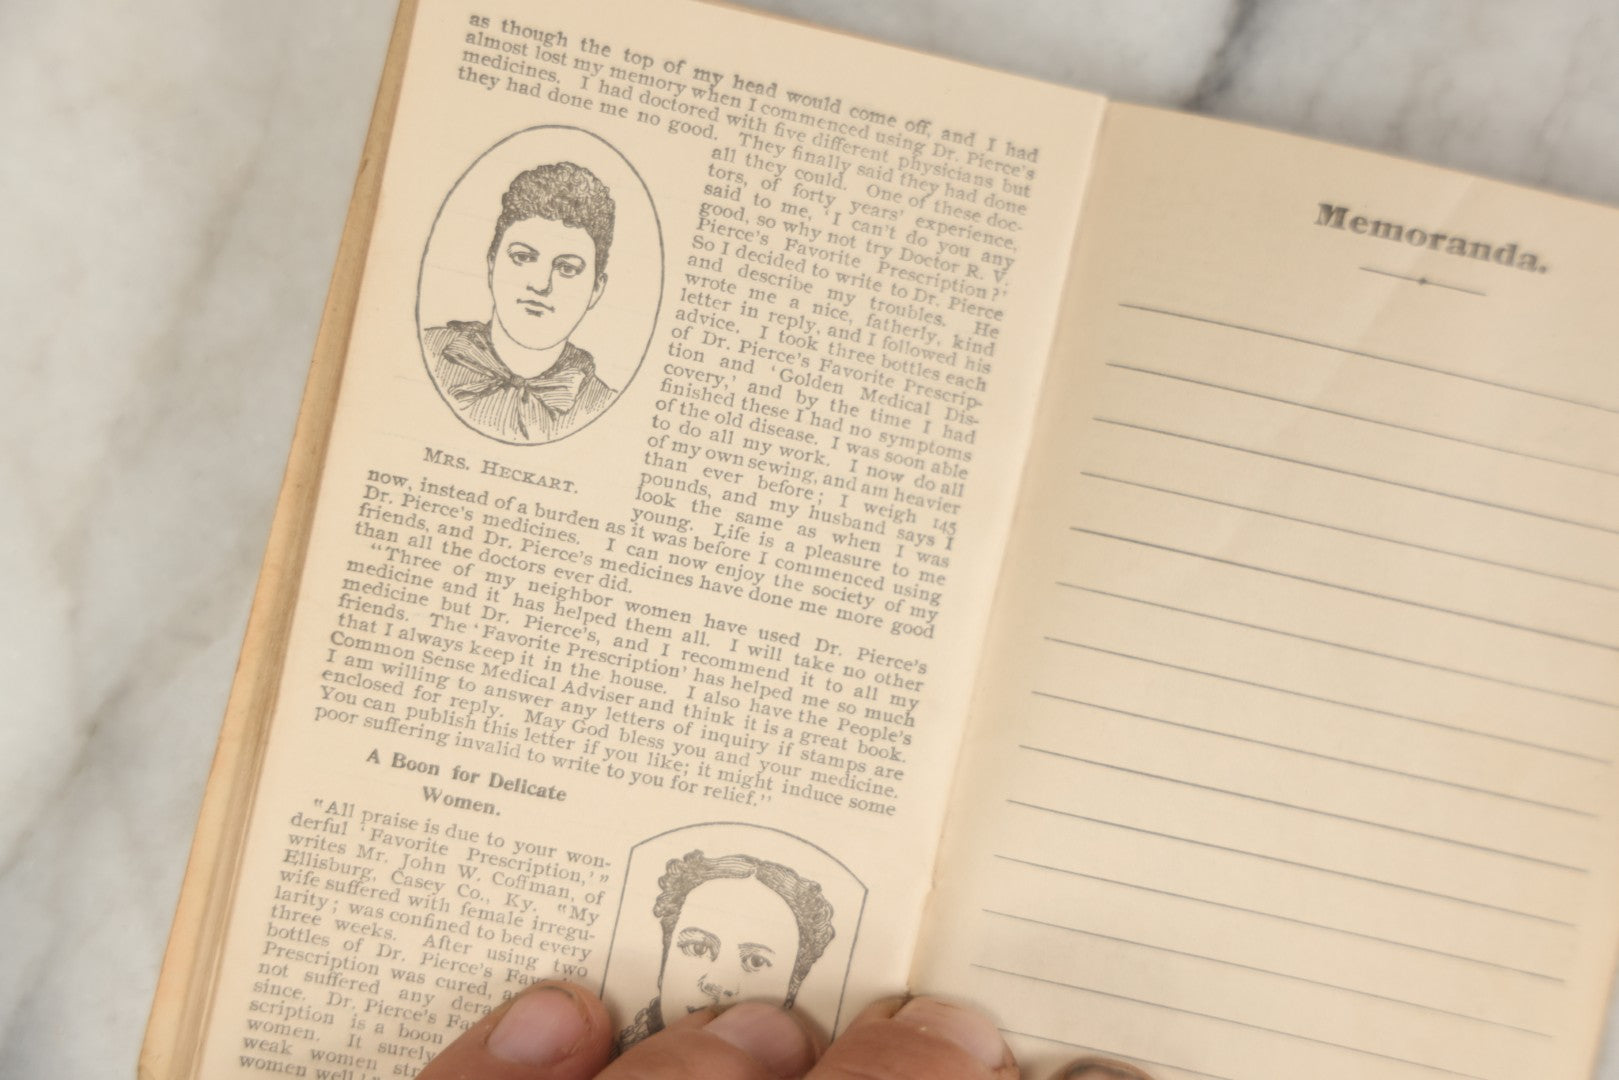 as though the top of my head would come off, and I had
almost lost my memory when I commenced using Dr. Pierce's
medicines. I had doctored with five different physicians but
they had done me no good. They finally said they had done
all they could. One of these doc-
tors, of forty years' experience,
said to me, 'I can't do you any
good, so why not try Doctor R. V.
Pierce's Favorite Prescription?'
So I decided to write to Dr. Pierce
and describe my troubles. He
wrote me a nice, fatherly, kind
letter in reply, and I followed his
advice. I took three bottles each
of Dr. Pierce's Favorite Prescrip-
tion and 'Golden Medical Dis-
covery,' and by the time I had
finished these I had no symptoms
of the old disease. I was soon able
to do all my work. I now do all
of my own sewing, and am heavier
than ever before; I weigh 145
pounds, and my husband says I
look the same as when I was
young. Life is a pleasure to me
MRS. HECKART.
now, instead of a burden as it was before I commenced using
Dr. Pierce's medicines. I can now enjoy the society of my
friends, and Dr. Pierce's medicines have done me more good
than all the doctors ever did.
"Three of my neighbor women have used Dr. Pierce's
medicine and it has helped them all. I will take no other
medicine but Dr. Pierce's, and I recommend it to all my
friends. The 'Favorite Prescription' has helped me so much
that I always keep it in the house. I also have the People's
Common Sense Medical Adviser and think it is a great book.
I am willing to answer any letters of inquiry if stamps are
enclosed for reply. May God bless you and your medicine.
You can publish this letter if you like; it might induce some
poor suffering invalid to write to you for relief."
A Boon for Delicate
Women.
"All praise is due to your won-
derful 'Favorite Prescription,'"
writes Mr. John W. Coffman, of
Ellisburg, Casey Co., Ky. "My
wife suffered with female irregu-
larity; was confined to bed every
three weeks. After using two
bottles of Dr. Pierce's
Prescription was cured,
not suffered any
since. Dr. Pierce's
scription is a boon
women. It surely
weak women
women well.'"
Memoranda.